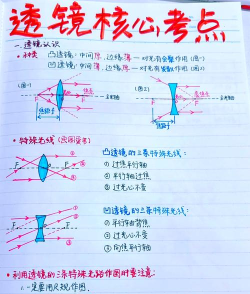 透镜核心考点
一.透镜认识
• 种类 凸透镜:中间厚、边缘薄—对光有会聚作用(图1)
凹透镜:中间薄、边缘厚—对光有发散作用(图2)
(图1)
(图2)
主光轴
主光轴
• 特殊光线(画图要考)
凸透镜的三条特殊光线:
① 过焦平行轴
② 平行轴过焦
③ 过光心不变
凹透镜的三条特殊光线:
① 平行轴背焦
② 过光心不变
③ 向焦平行轴
• 利用透镜的三条特殊光路作图时要注意:
1.一定要用尺规作图.